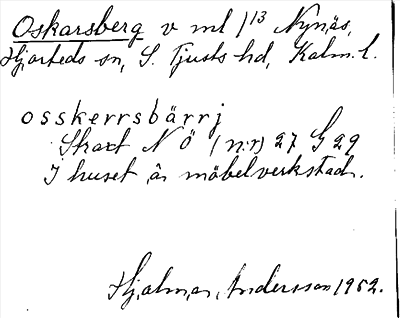 Oskarsberg v ml 1/13 Nynäs,
Hjorteds sn, S. Tjusts hd, Kalm. l.
osskerrsbärrj
NÖ (nr) 27 G 29
I huset är möbelverkstad.
Hjalmar Andersson 1962.